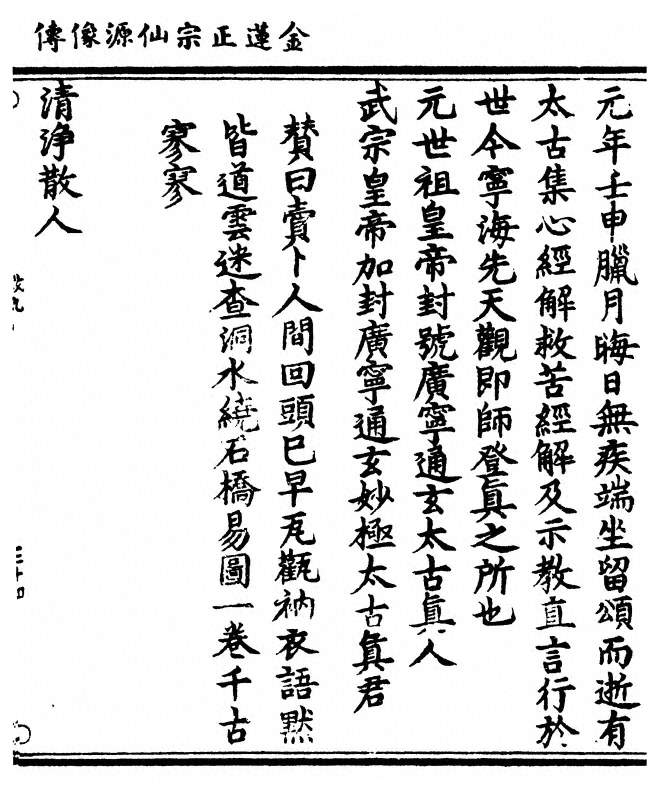 金蓮正宗仙源像傳
元年壬申臘月晦日無疾端坐留頌而逝有
太古集心經解救苦經解及示教直言行於
世今寧海先天觀即師登真之所也
元世祖皇帝封號廣寧通玄太古真人
武宗皇帝加封廣寧通玄妙極太古真君
贊曰賣卜人間回頭已早瓦觀衲衣語黙
皆道雲迷查洞水繞石橋易圖一卷千古
寥寥
清淨散人
三十四